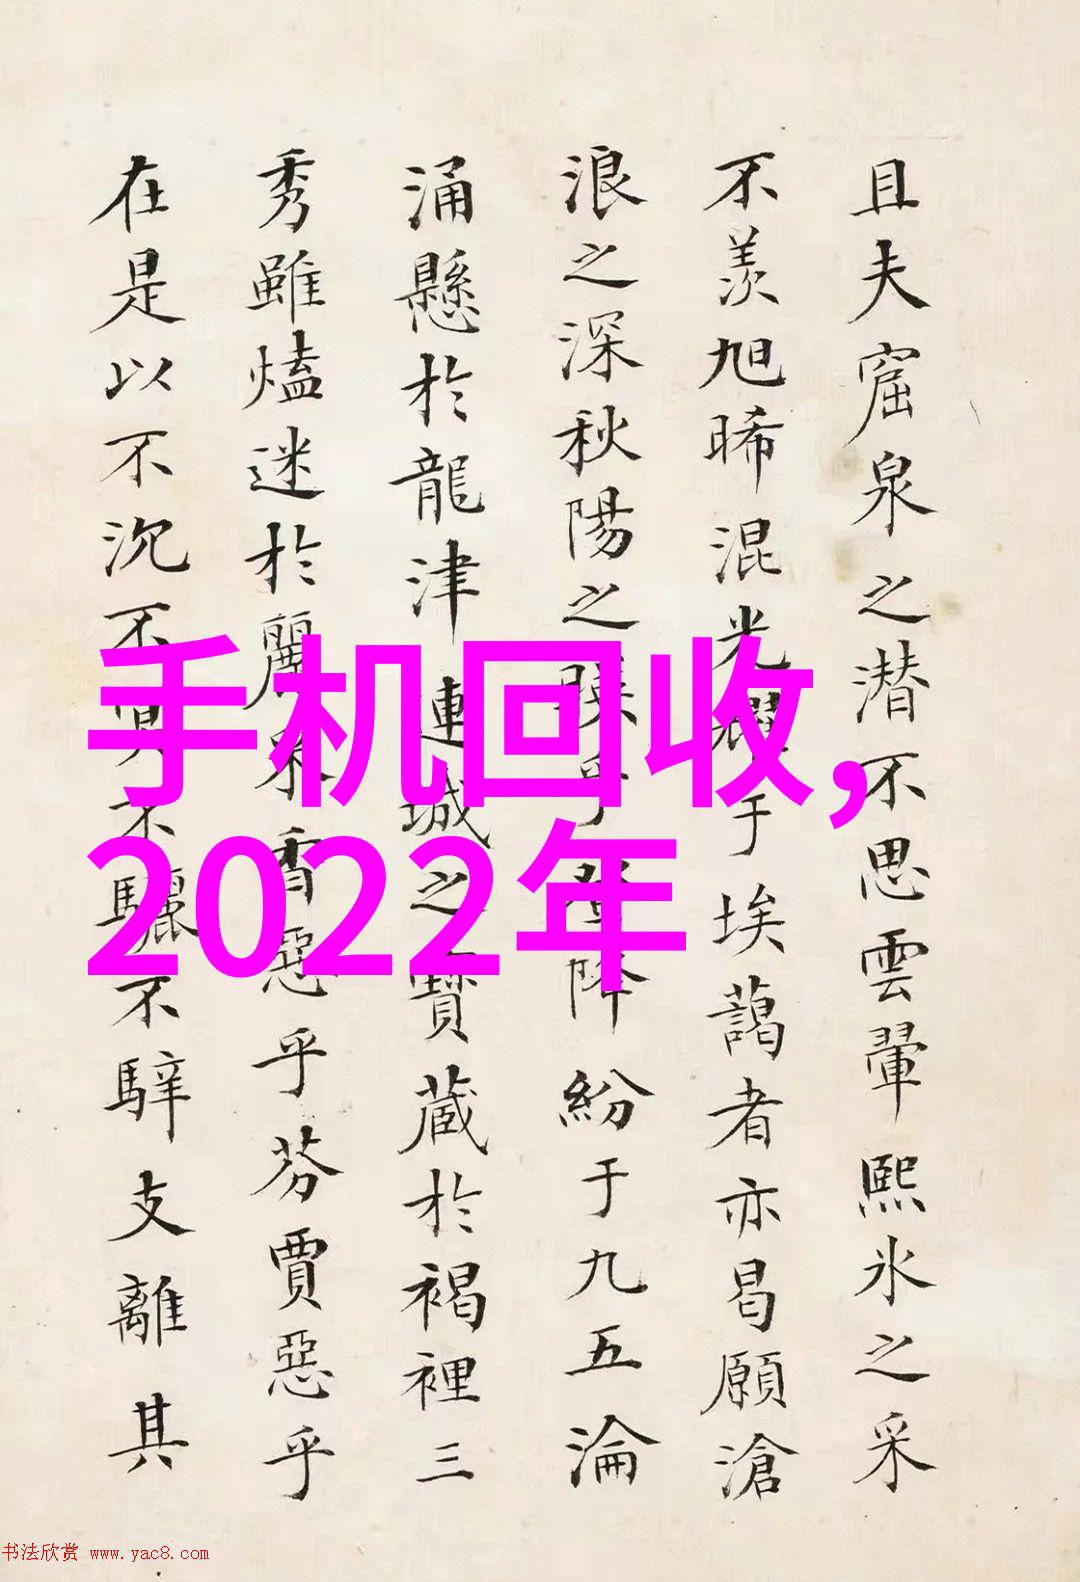 且夫窟泉之潜不思雲翬熙氷之采
不羡旭晞混光耀于埃藹者亦曷願滄
浪之深秋陽之映乎登降紛于九五淪
涌懸於龍津連城之寶蔵於褐裡三
秀雖熆迷於麗采香惡乎芬賈惡乎
在是以不沉不不驪不騂支離其
手机回收，
2022年
书法欣赏 www.yac8.com